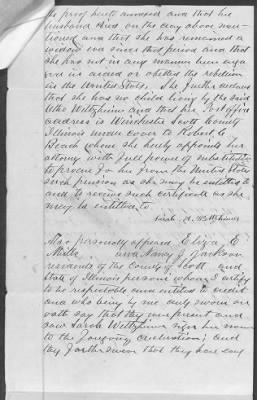 the proof hereto annexed and that her
husband died on the day above men-
tioned and that she has remained a
widow ever since that period and that
she has not in any manner been enga
ged in or aided or abetted the rebellion
in the United States. She further declares
that she has no child living by the said
and that her Post office
address is Winchester Scott County
Illinois under cover to Robert
Beach whom she hereby appoints her
attorney with full power of substitution
to procure for her from the United States
such pension as she may be entitled to
and to receive such certificate as she
may be entitled to.
Sarah A.
Also personally appeared Eliza E
and Nancy J Jackson
residents of the County of Scott and
State of Illinois persons whom I certify
to be respectable and entitled to credit
and who being by me duly sworn on
oath say that they were present and
saw Sarah sign her name
to the foregoing declaration; and
they further swear that they have every